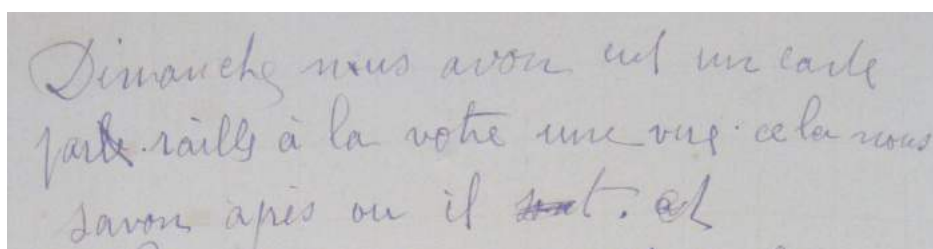 Dimanche nous avon eut un carte
parle. raille à la votre une vue. cela nous
savon après ou il sont. et